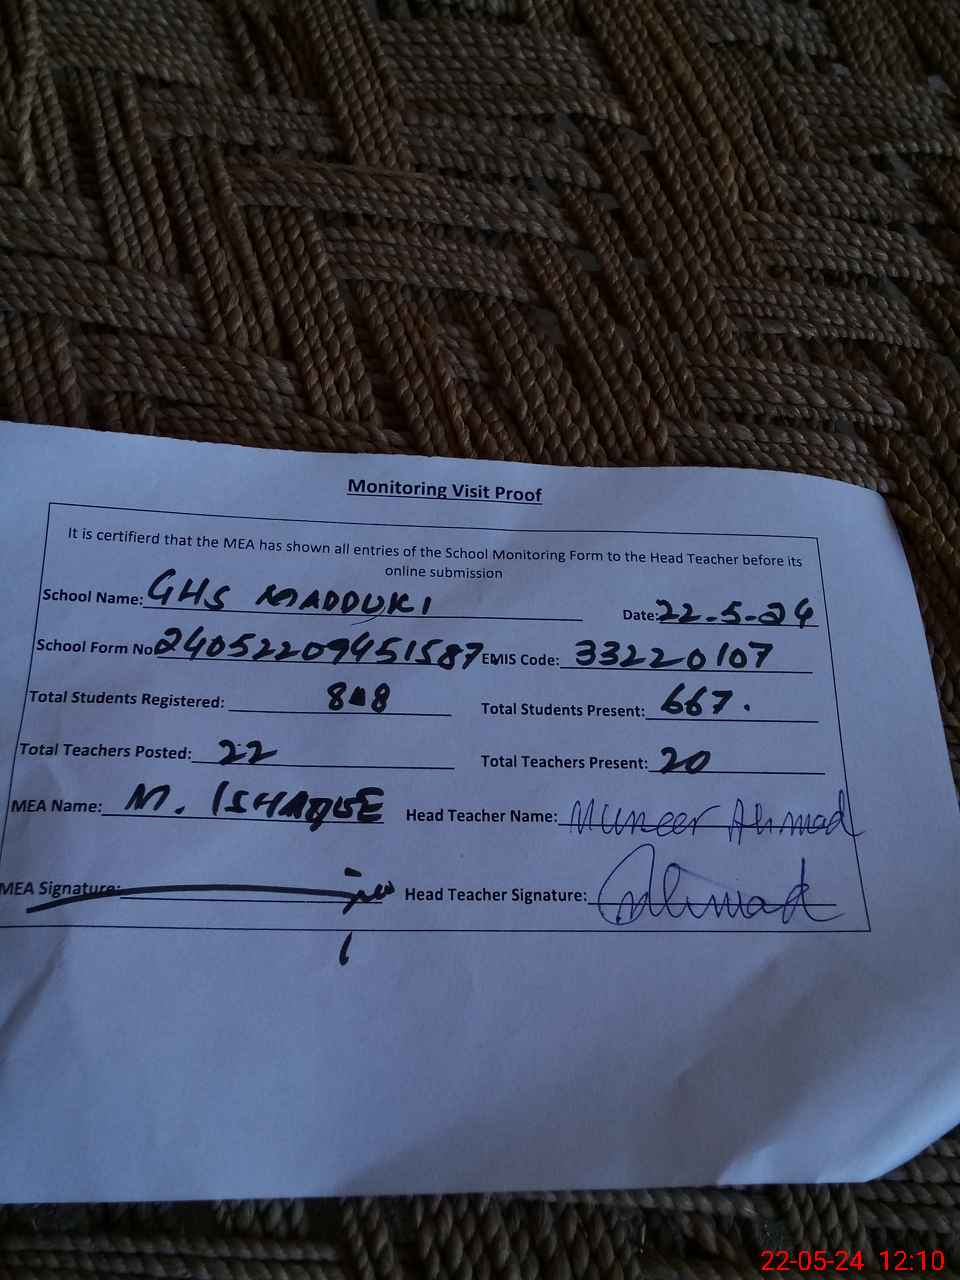 Monitoring Visit Proof
It is certifierd that the MEA has shown all entries of the School Monitoring Form to the Head Teacher before its
online submission
School Name: GHS MADDUKI Date: 22-5-24
School Form No 24052209451587 EMIS Code: 33220107
Total Students Registered: Total Students Present: 667.
Total Teachers Posted: 22 Total Teachers Present: 20
MEA Name: M. ISHAQUE Head Teacher Name: Muneer Ahmad
MEA Signature: Head Teacher Signature: Ahmad
22-05-24 12:10